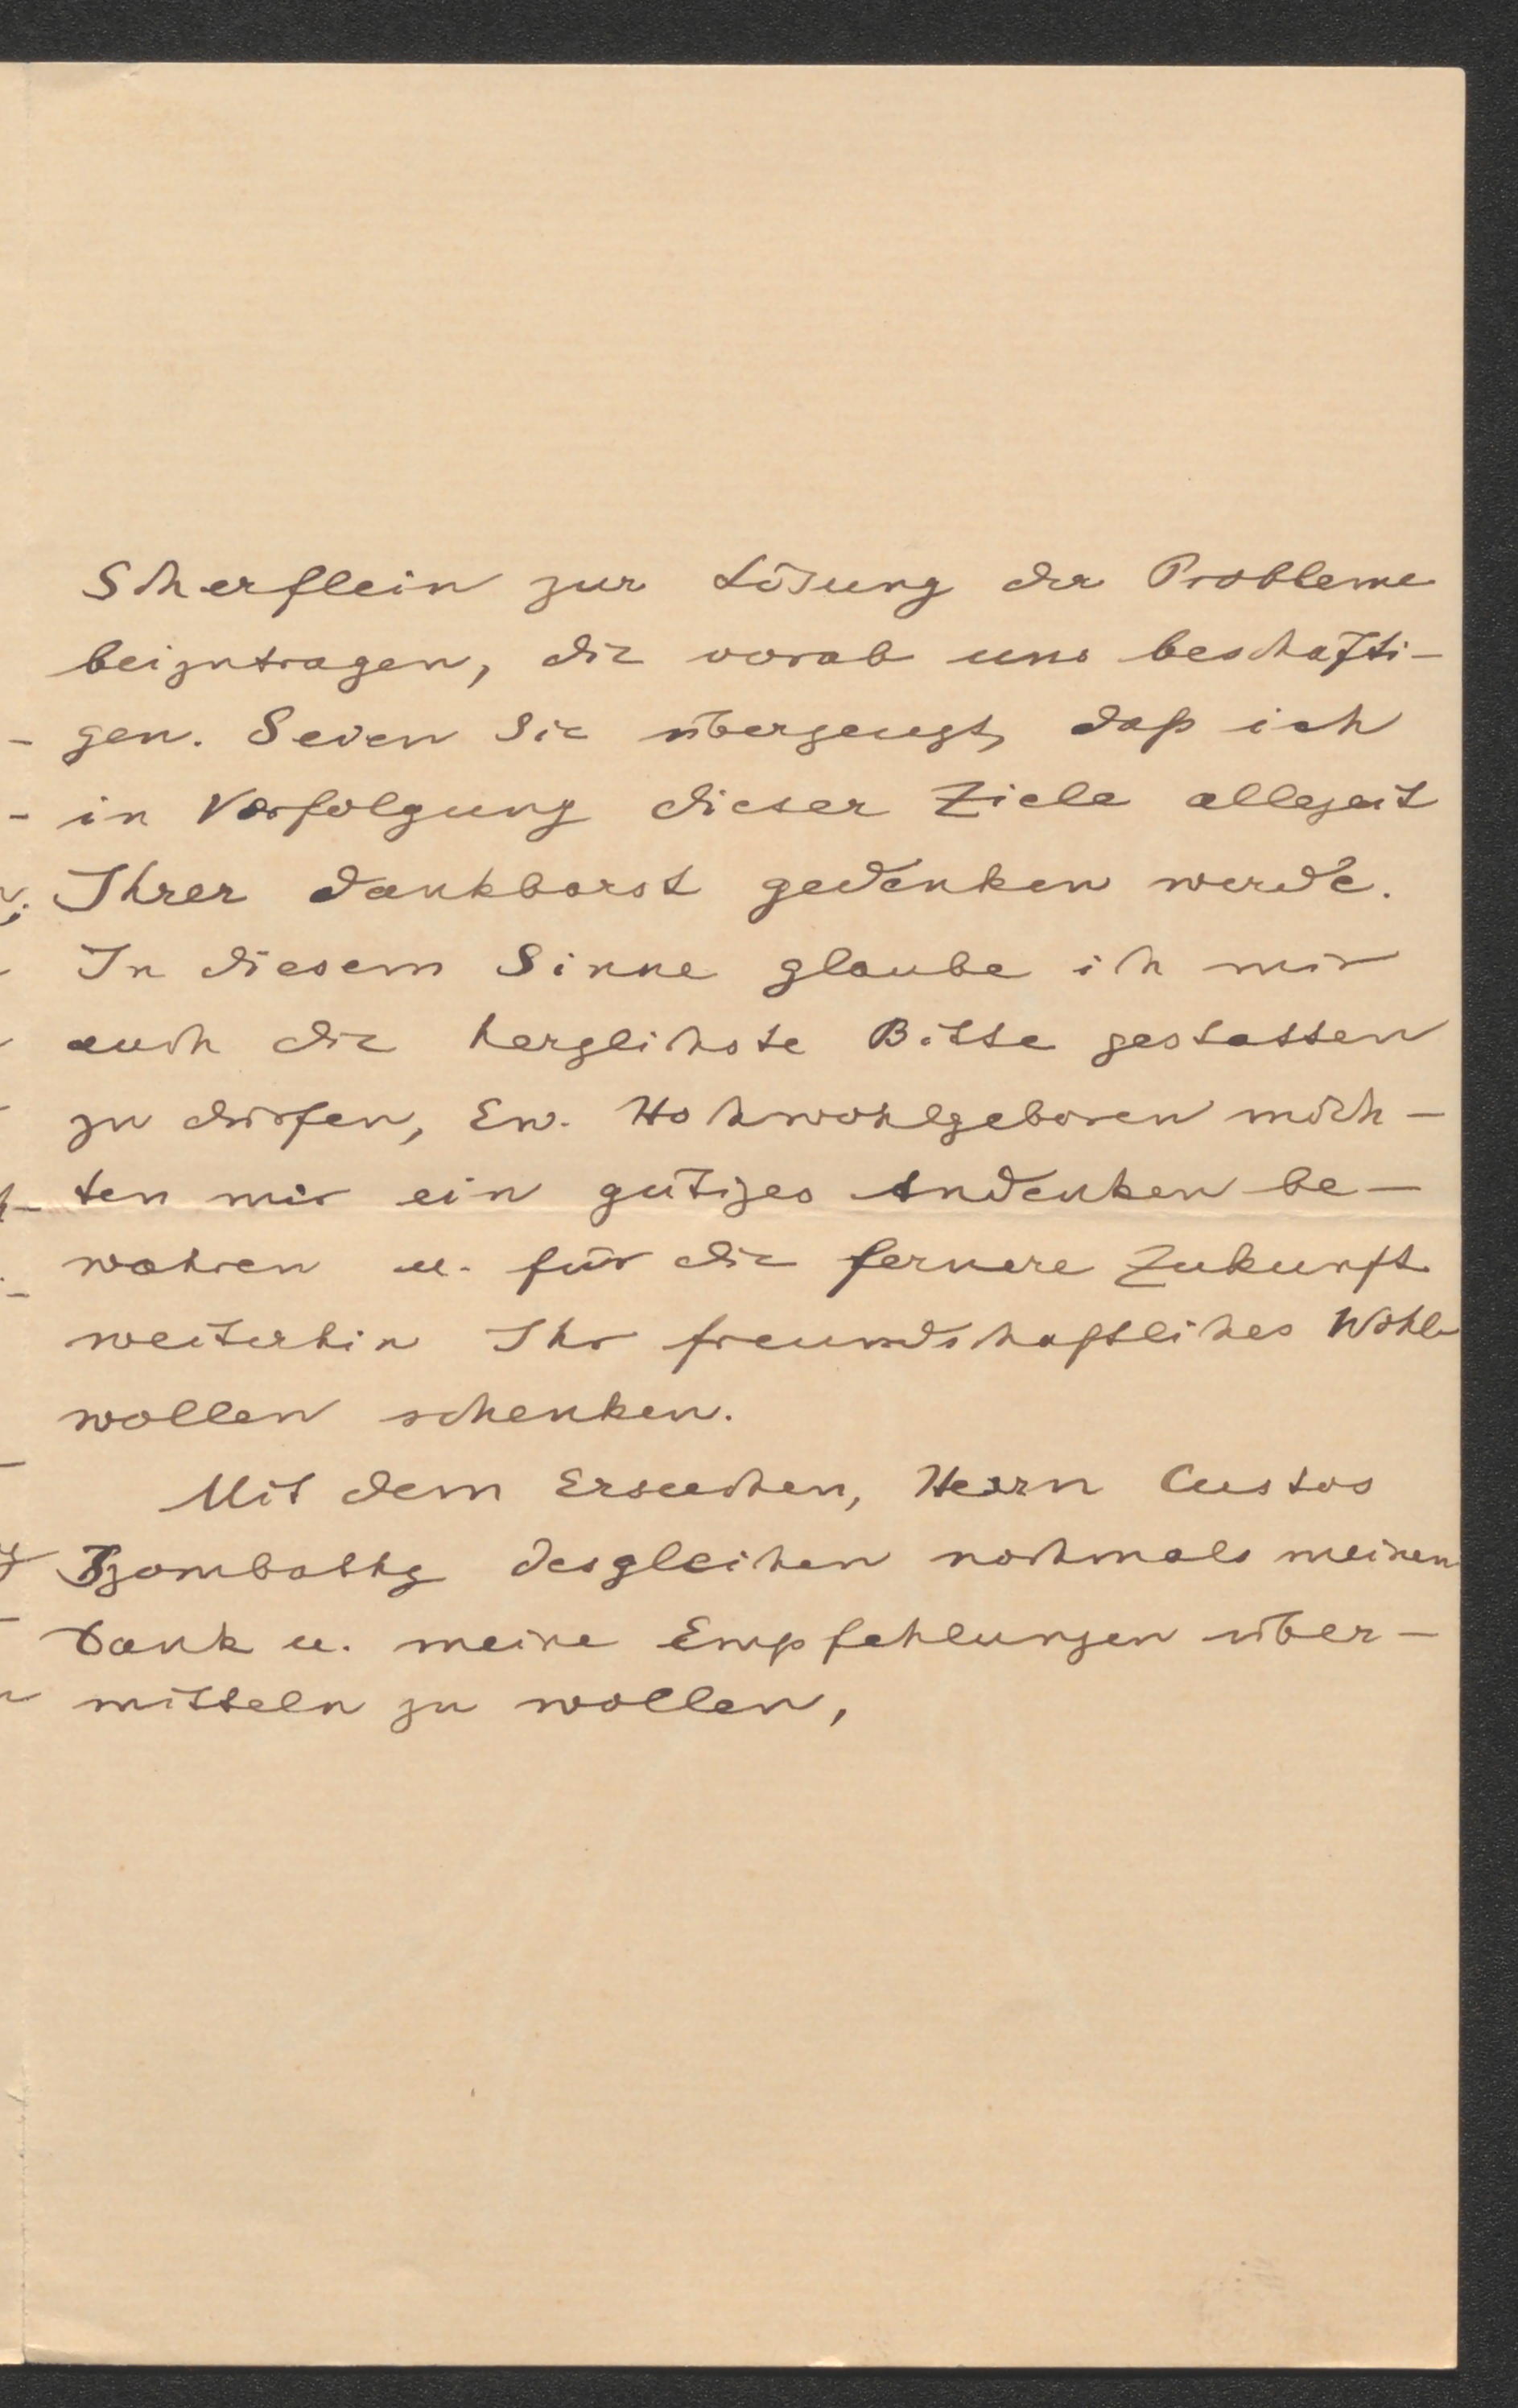 Scherflein zur Lösung der Probleme
beizutragen, die vorab uns beschäfti-
gen. Seien Sie überzeugt, daß ich
in Verfolgung dieser Ziele allezeit
Ihrer dankbarst gedenken werde.
In diesem Sinne glaube ich mir
auch die herzlichste Bitte gestatten
zu dürfen, Ew. Hochwohlgeboren möch-
ten mir ein gütiges Andenken be-
wahren u. für die fernere Zukunft
weiterhin Ihr freundschaftliches Wohl-
wollen schenken.
Mit dem Ersuchen, Herrn Custos
Szombathy desgleichen nochmals meinen
Dank u. meine Empfehlungen über-
mitteln zu wollen,